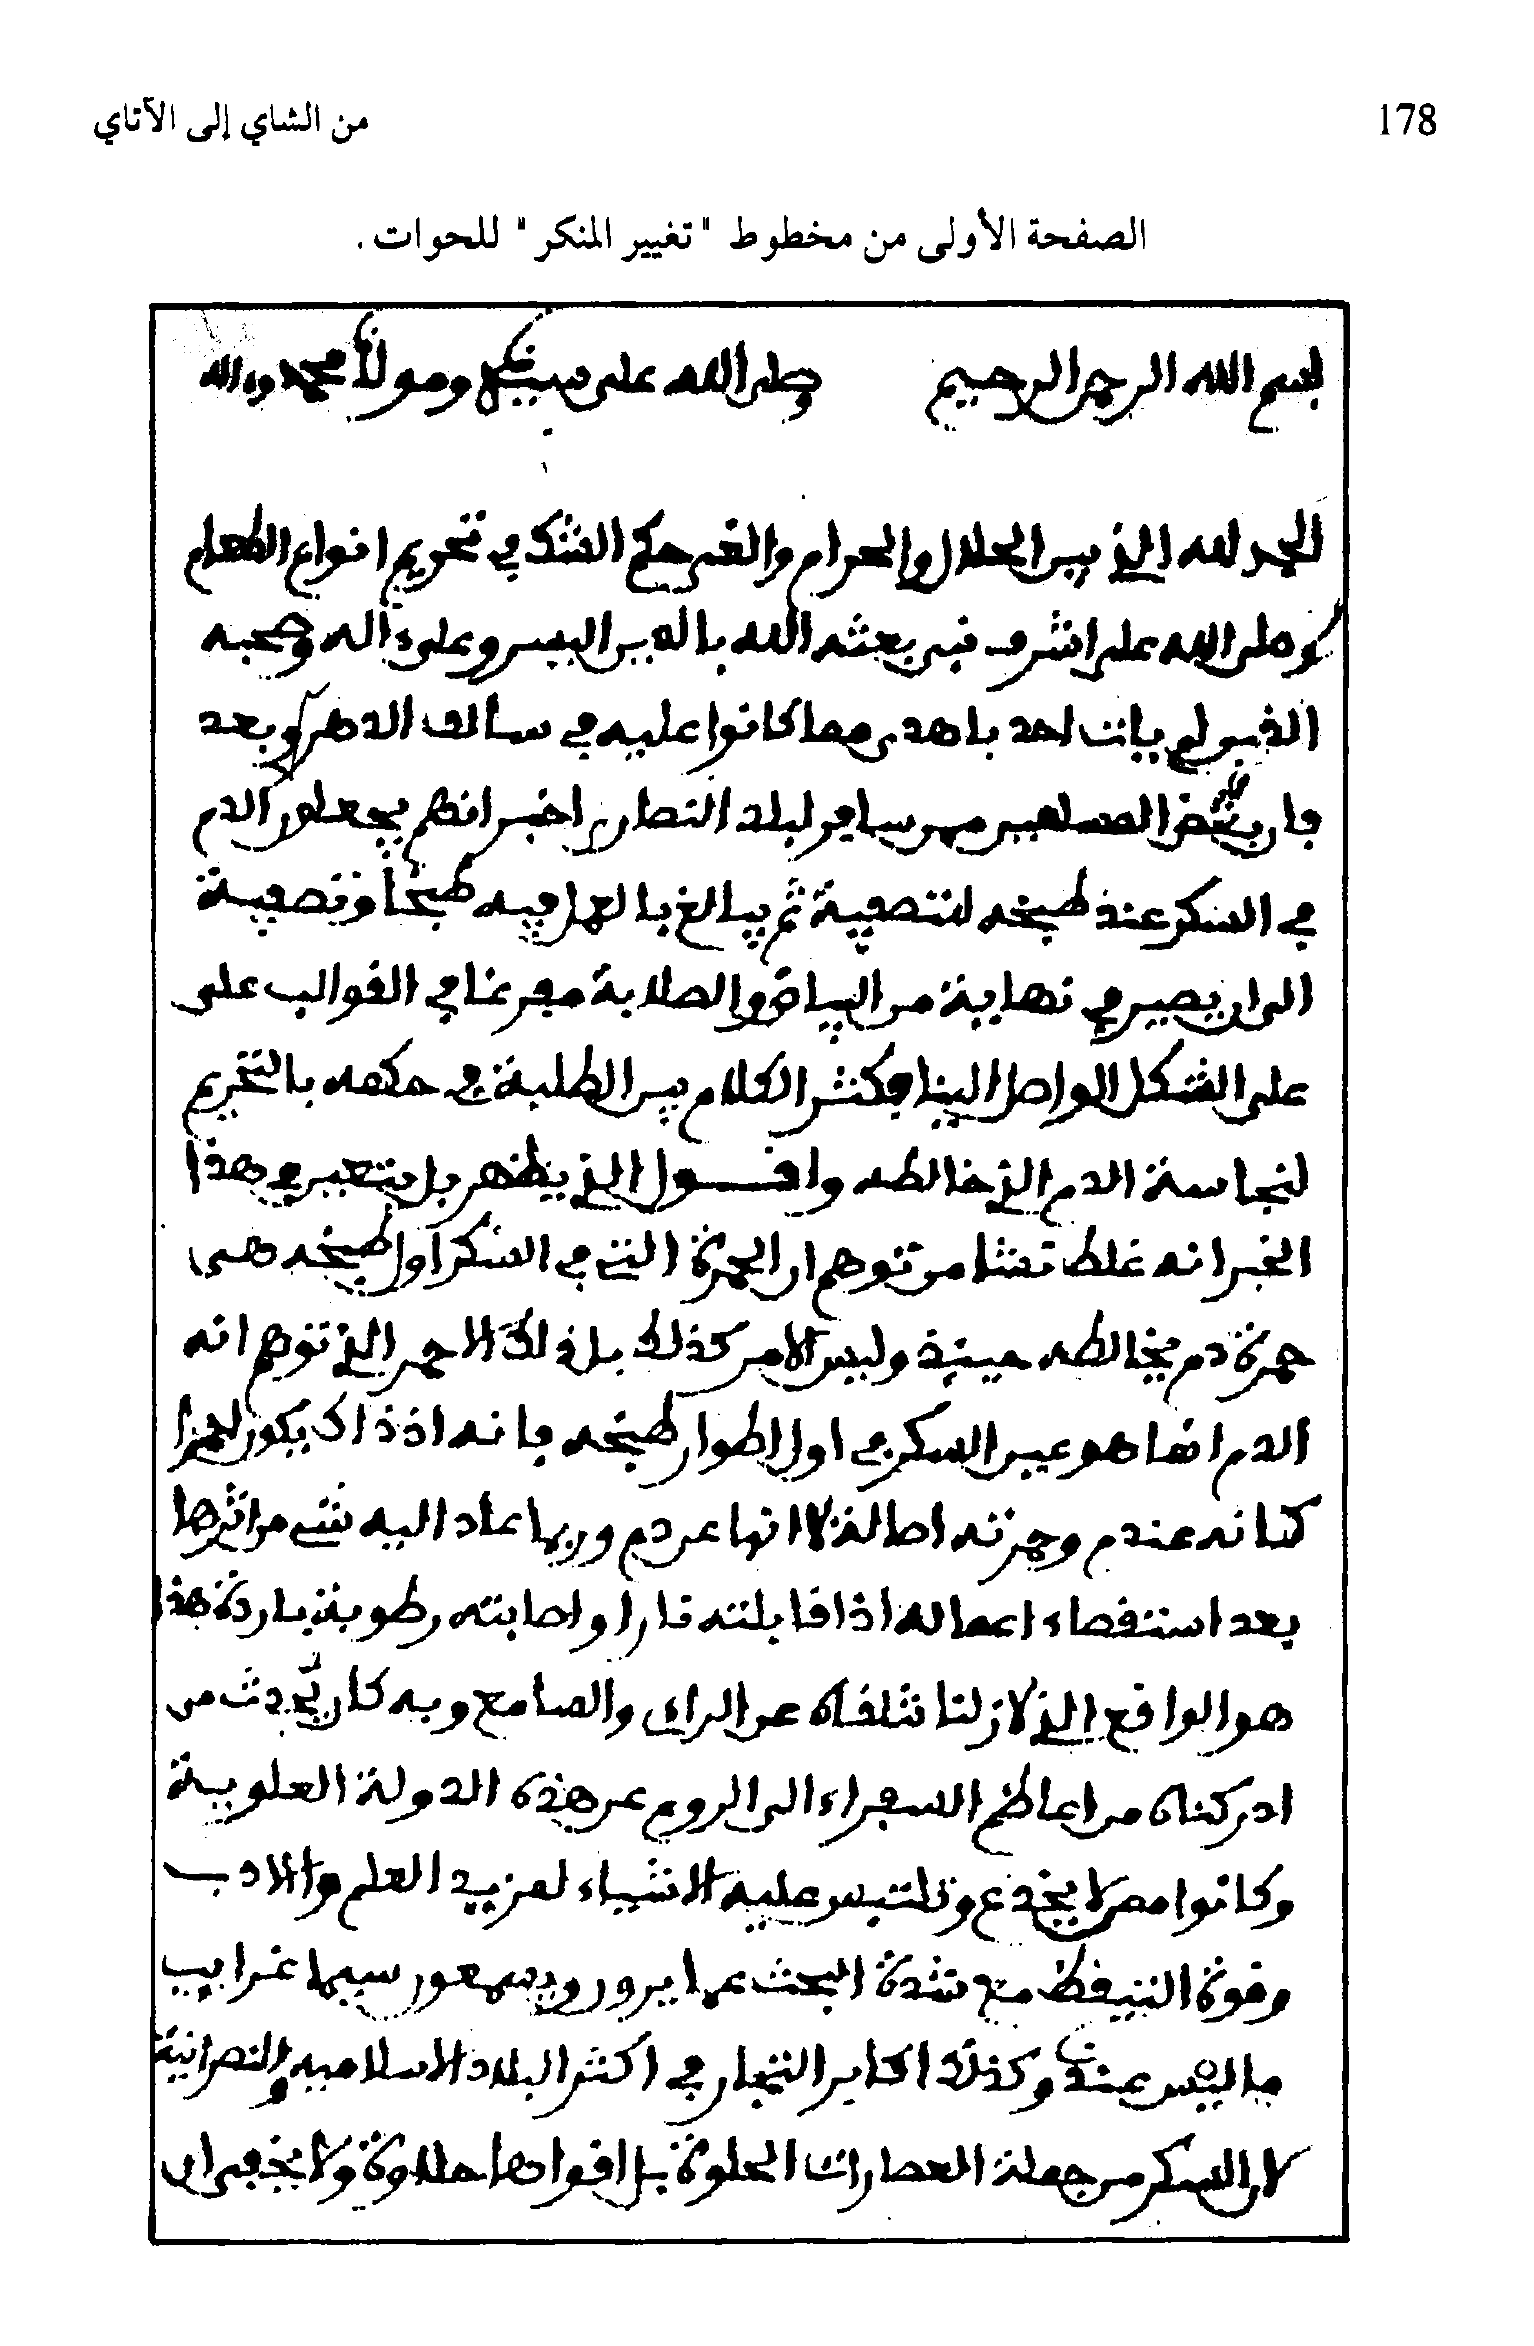 178
من الشاي إلى الآتاي
الصفحة الأولى من مخطوط "تغيير المنكر" للحوات.
بسم الله الرحمن الرحيم وصلى الله على سيدنا ومولانا محمد وءاله
الحمد لله الذي بين الحلال والحرام والغى حكم الشك في تحريم انواع الطعام
وصلى الله على اشرف نبي بعثه الله بالدين اليسر وعلى ءاله وصحبه
الذين لم يات احد باهدى مما كانوا عليه في سالف الدهر وبعد
فان بعض المسلمين ممن سافر لبلد النصارى اخبر انهم يجعلون الدم
في السكر عند طبخه لتصفية ثم يبالغ بالعمل فيه طبخا وتصفية
الى ان يصير في نهاية من البياض والصلابة مفرغا في القوالب على
على الشكل الواصل الينا فكثر الكلام بين الطلبة في حكمه بالتحريم
لنجاسة الدم الذي خالطه واقول الذي يظهر بل يتعين في هذا
الخبر انه غلط نشا من توهم ان الحمرة التي في السكر اول طبخه هي
حمرة دم مخالطه حينئذ وليس الامر كذلك بل ذلك الاحمر الذي توهم انه
الدم انما هو عين السكر في اول اطوار طبخه فانه اذ ذاك يكون احمرا
كانه عندم وحمرته اصالة لا انها عن دم وربما عاد اليه شيء من اثرها
بعد استقصاء اعماله اذا قابلته نارا واصابته رطوبة باردة هذا
هو الواقع الذي لازلنا نتلقاه عن الراي والسامع وبه كان يحدث من
ادركناه من اعاظم السفراء الى الروم عن هذه الدولة العلوية
وكانوا ممن لا يخدع وتلتبس عليه الاشياء لمزيد العلم والادب
وقوة التيقظ مع شدة البحث عما يرون ويسمعون سيما غرايب
ما ليس عندنا وكذلك اكابر التجار في اكثر البلاد الاسلاميه والنصرانية
لان السكر من جملة العصارات الحلوة بل اقواها حلاوة ولا يخفى ان